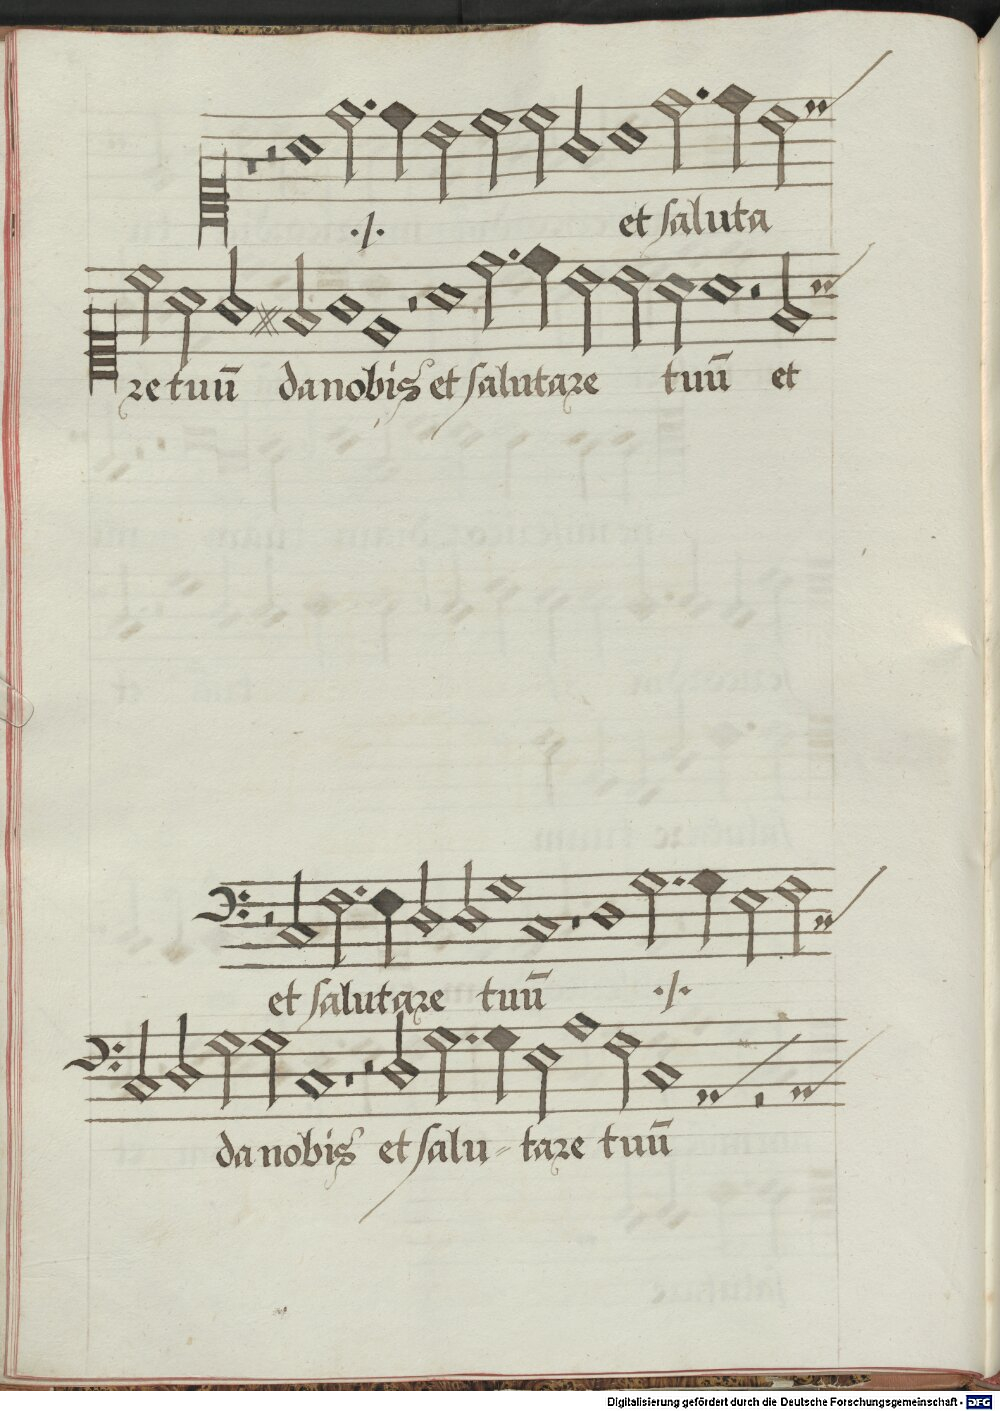 ./. et saluta
re tuū da nobis et salutare tuū et
et salutare tuū ./.
da nobis et salu - tare tuū
Digitalisierung gefördert durch die Deutsche Forschungsgemeinschaft - DFG